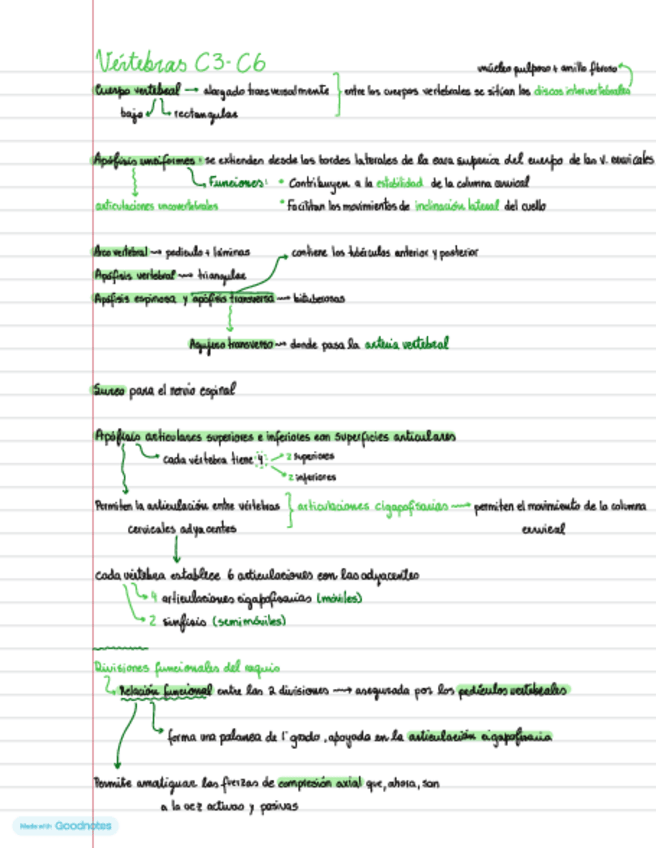 Vértebras C3-C6
núcleo pulposo + anillo fibroso
Cuerpo vertebral → alargado transversalmente } entre los cuerpos vertebrales se sitúan los discos intervertebrales
bajo rectangular
Apófisis unciformes: se extienden desde los bordes laterales de la cara superior del cuerpo de las v. cervicales
Funciones: * Contribuyen a la estabilidad de la columna cervical
articulaciones uncovertebrales * Facilitan los movimientos de inclinación lateral del cuello
Arco vertebral → pedículo + láminas contiene los tubérculos anterior y posterior
Apófisis vertebral → triangular
Apófisis espinosa y apófisis transversa → bituberosas
Agujero transverso → donde pasa la arteria vertebral
Surco para el nervio espinal
Apófisis articulares superiores e inferiores con superficies articulares
cada vértebra tiene 4 → 2 superiores
→ 2 inferiores
Permiten la articulación entre vértebras } articulaciones cigapofisarias → permiten el movimiento de la columna
cervicales adyacentes cervical
Cada vértebra establece 6 articulaciones con las adyacentes
4 articulaciones cigapofisarias (móviles)
2 sínfisis (semimóviles)
Divisiones funcionales del raquis
Relación funcional entre las 2 divisiones → asegurada por los pedículos vertebrales
forma una palanca de 1º grado, apoyada en la articulación cigapofisaria
Permite amortiguar las fuerzas de compresión axial que, ahora, son
a la vez activas y pasivas
Made with Goodnotes